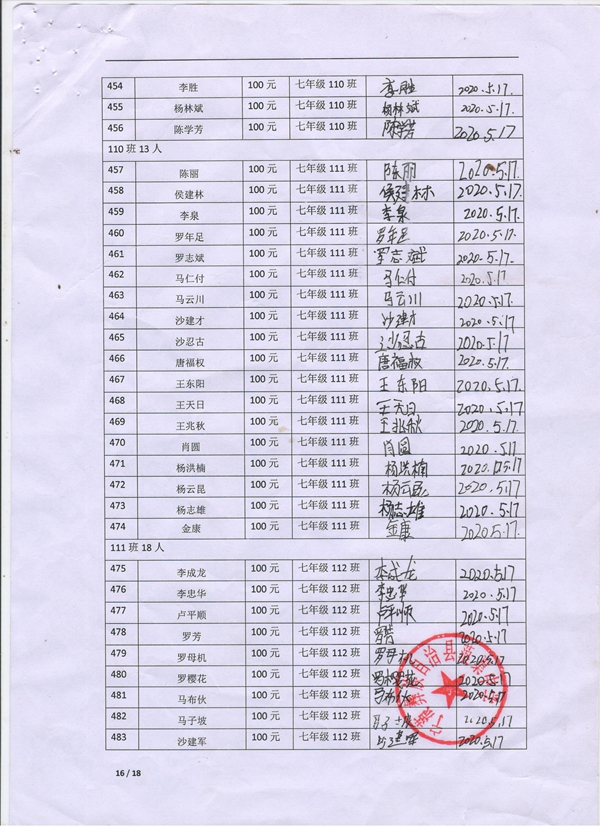 454 李胜 100 元 七年级 110 班 李胜 2020.5.17.
455 杨林斌 100 元 七年级 110 班 杨林斌 2020.5.17.
456 陈学芳 100 元 七年级 110 班 陈学芳 2020.5.17
110 班 13 人
457 陈丽 100 元 七年级 111 班 陈丽 2020.5.17.
458 侯建林 100 元 七年级 111 班 侯建林 2020.5.17.
459 李泉 100 元 七年级 111 班 李泉 2020.5.17.
460 罗年足 100 元 七年级 111 班 罗年足 2020.5.17.
461 罗志斌 100 元 七年级 111 班 罗志斌 2020.5.17.
462 马仁付 100 元 七年级 111 班 马仁付 2020.5.17.
463 马云川 100 元 七年级 111 班 马云川 2020.5.17.
464 沙建才 100 元 七年级 111 班 沙建才 2020.5.17
465 沙忍古 100 元 七年级 111 班 沙忍古 2020.5.17
466 唐福权 100 元 七年级 111 班 唐福权 2020.5.17.
467 王东阳 100 元 七年级 111 班 王东阳 2020.5.17
468 王天日 100 元 七年级 111 班 王天日 2020.5.17
469 王兆秋 100 元 七年级 111 班 王兆秋 2020.5.17
470 肖圆 100 元 七年级 111 班 肖圆 2020.5.17
471 杨洪楠 100 元 七年级 111 班 杨洪楠
472 杨云昆 100 元 七年级 111 班 杨云昆 2020.5.17
473 杨志雄 100 元 七年级 111 班 杨志雄 2020.5.17
474 金康 100 元 七年级 111 班 金康 2020.5.17.
111 班 18 人
475 李成龙 100 元 七年级 112 班 李成龙 2020.5.17
476 李忠华 100 元 七年级 112 班 李忠华 2020.5.17
477 卢平顺 100 元 七年级 112 班 卢平顺 2020.5.17
478 罗芳 100 元 七年级 112 班 罗芳 2020.5.17
479 罗母机 100 元 七年级 112 班 罗母机 2020.5.17
480 罗樱花 100 元 七年级 112 班 罗樱花 2020.5.17
481 马布伙 100 元 七年级 112 班 马布伙 2020.5.17
482 马子坡 100 元 七年级 112 班 2020.5.17
483 沙建军 100 元 七年级 112 班 沙建军 2020.5.17
自治县
16 / 18